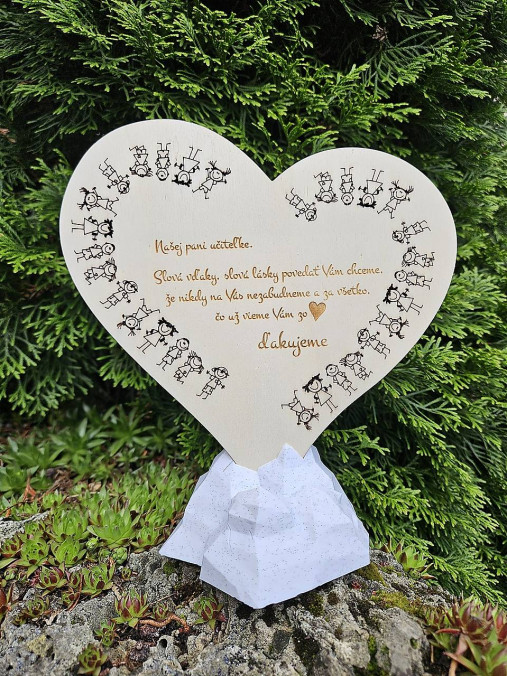 Našej pani učiteľke.
Slová vďaky, slová lásky povedať Vám chceme,
že nikdy na Vás nezabudneme a za všetko,
čo už vieme Vám zo
ďakujeme